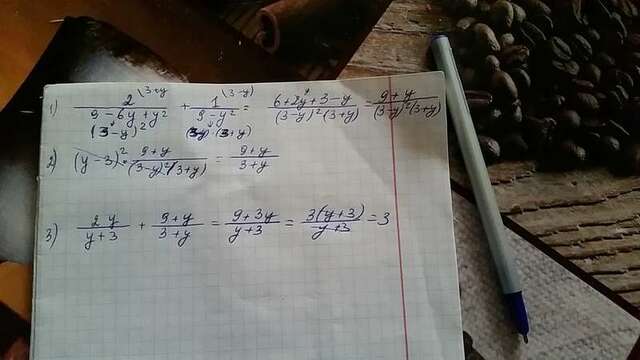 1) 2^{\(3+y} / (9-6y+y²) + 1^{\(3-y)} / (9-y²) = (6+2y+3-y) / ((3-y)²(3+y)) = (9+y) / ((3-y)²(3+y))
(3-y)² (3-y)(3+y)
2) (y-3)² · (9+y) / ((3-y)²(3+y)) = (9+y) / (3+y)
3) 2y / (y+3) + (9+y) / (3+y) = (9+3y) / (y+3) = 3(y+3) / (y+3) = 3